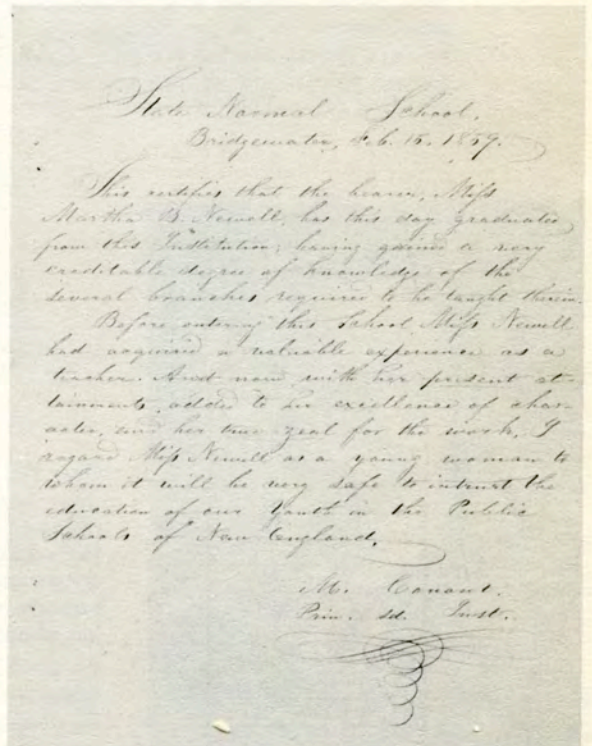 State Normal School,
Bridgewater, Feb. 15. 1859.
This certifies that the bearer, Miss
Martha B. Newell, has this day graduated
from this Institution; having gained a very
creditable degree of knowledge of the
several branches required to be taught therein.
Before entering this School, Miss Newell
had acquired a valuable experience as a
teacher. And now with her present at-
tainments, added to her excellence of char-
acter, and her true zeal for the work, I
regard Miss Newell as a young woman to
whom it will be very safe to intrust the
education of our Youth in the Public
Schools of New England.
M. Conant.
Prin. sd. Inst.